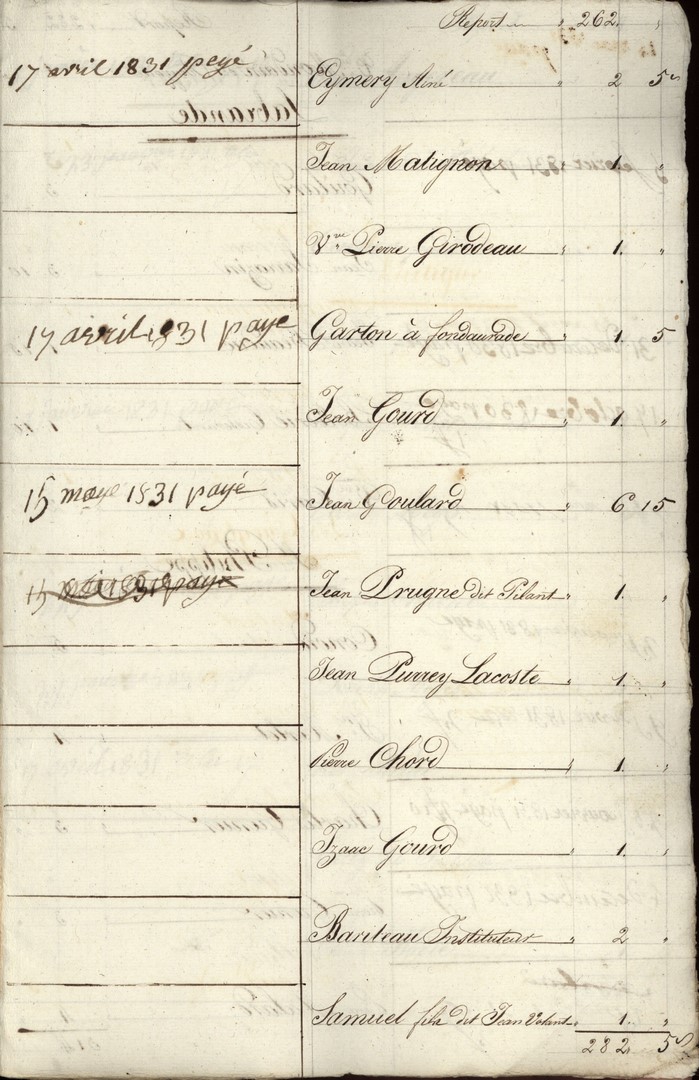 Report " 262. "
17 avril 1831 payé Eymery Aîné " 2 5s
Jean Matignon " 1. "
Vve Pierre Girodeau " 1. "
17 avril 1831 payé Garton à fondaurade " 1. 5
Jean Gourd " 1. "
15 maye 1831 payé Jean Goulard " 6 15
15 1831 payé Jean Prugne dit Pilant " 1. "
Jean Purrey Lacoste " 1. "
Pierre Chord " 1. "
Izaac Gourd " 1. "
Bariteau Instituteur " 2 "
Samuel fils dit Jean Volant " 1. "
282. 5s